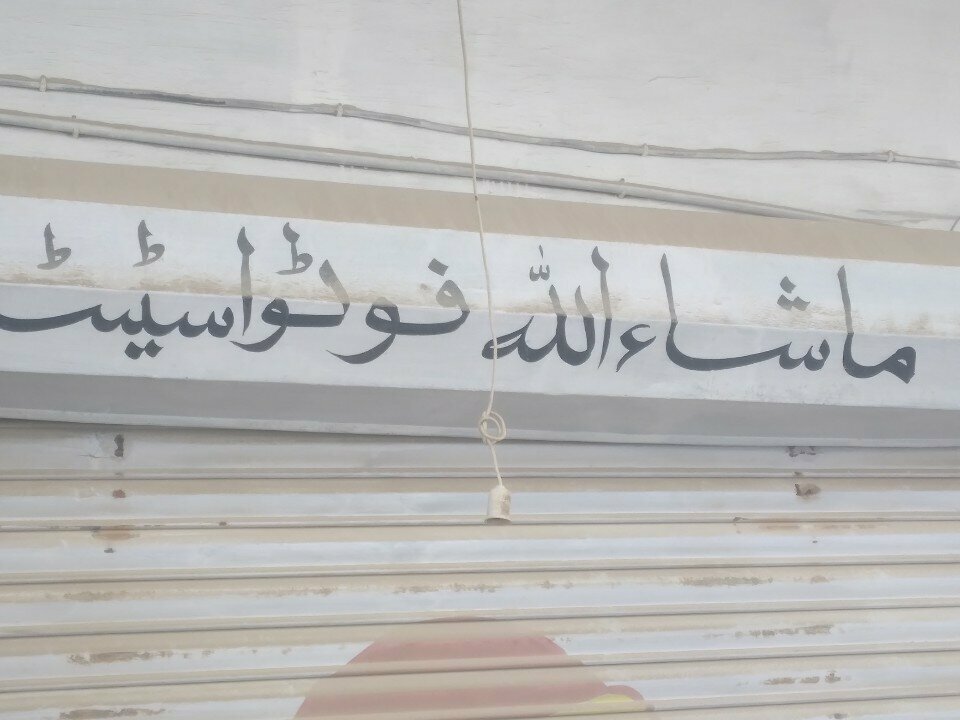 ماشاءاللہ فوٹواسٹیٹ